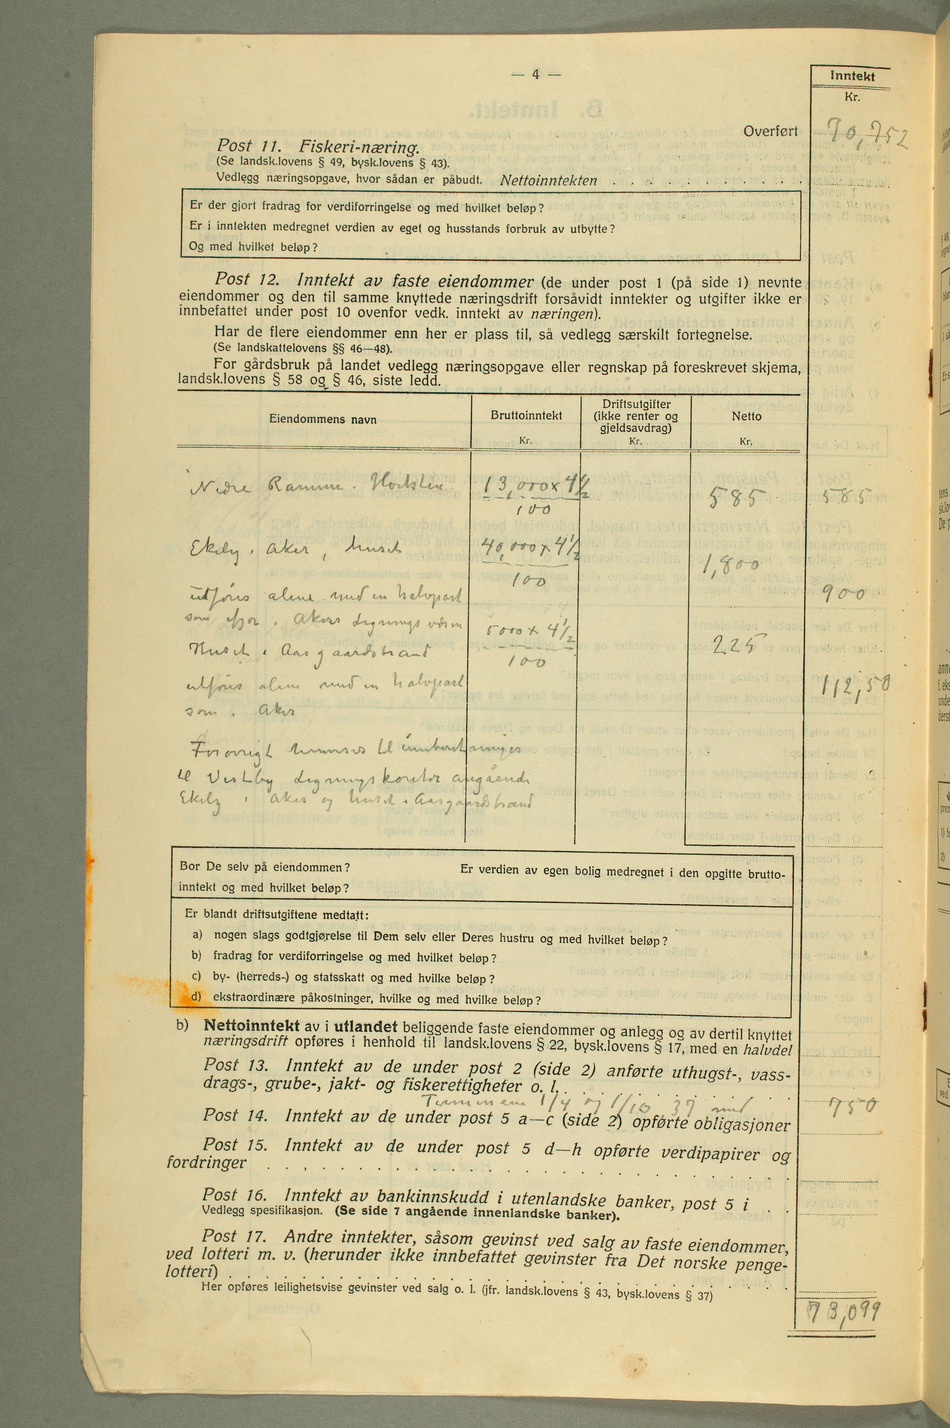 — 4 —
Inntekt
Kr.
Overført 70,752
Post 11. Fiskeri-næring.
(Se landsk.lovens § 49, bysk.lovens § 43).
Vedlegg næringsopgave, hvor sådan er påbudt. Nettoinntekten . . . . . . . . . . .
Er der gjort fradrag for verdiforringelse og med hvilket beløp?
Er i inntekten medregnet verdien av eget og husstands forbruk av utbytte?
Og med hvilket beløp?
Post 12. Inntekt av faste eiendommer (de under post 1 (på side 1) nevnte
eiendommer og den til samme knyttede næringsdrift forsåvidt inntekter og utgifter ikke er
innbefattet under post 10 ovenfor vedk. inntekt av næringen).
Har de flere eiendommer enn her er plass til, så vedlegg særskilt fortegnelse.
(Se landskattelovens §§ 46—48).
For gårdsbruk på landet vedlegg næringsopgave eller regnskap på foreskrevet skjema,
landsk.lovens § 58 og § 46, siste ledd.
Eiendommens navn
Bruttoinntekt
Kr.
Driftsutgifter
(ikke renter og
gjeldsavdrag)
Kr.
Netto
Kr.
Nedre Ramme. 13,000 x 4½ 585 585
100
Ekely i Aker, huset 40,000 x 4½ 1,800
100
utføris alene med en halvpart 900
som ifjor i Akers Ligningsvæsen
5000 x 4½
Huset i Aasgaardstrand 225
100
utføris alene med en halvpart 112,50
som i Aker
Forøvrigt henvises til
til Vestby Ligningskontor angående
Ekely i Aker og huset i Aasgaardstrand
Bor De selv på eiendommen? Er verdien av egen bolig medregnet i den opgitte brutto-
inntekt og med hvilket beløp?
Er blandt driftsutgiftene medtatt:
a) nogen slags godtgjørelse til Dem selv eller Deres hustru og med hvilket beløp?
b) fradrag for verdiforringelse og med hvilket beløp?
c) by- (herreds-) og statsskatt og med hvilke beløp?
d) ekstraordinære påkostninger, hvilke og med hvilke beløp?
b) Nettoinntekt av i utlandet beliggende faste eiendommer og anlegg og av dertil knyttet
næringsdrift opføres i henhold til landsk.lovens § 22, bysk.lovens § 17, med en halvdel
Post 13. Inntekt av de under post 2 (side 2) anførte uthugst-, vass-
drags-, grube-, jakt- og fiskerettigheter o. l. . . . . . . . . . . .
Terminene 1/4 og 1/10 39 med 750
Post 14. Inntekt av de under post 5 a—c (side 2) opførte obligasjoner
Post 15. Inntekt av de under post 5 d—h opførte verdipapirer og
fordringer . . . . . . . . . . . . . . . . . . . .
Post 16. Inntekt av bankinnskudd i utenlandske banker, post 5 i . .
Vedlegg spesifikasjon. (Se side 7 angående innenlandske banker).
Post 17. Andre inntekter, såsom gevinst ved salg av faste eiendommer,
ved lotteri m. v. (herunder ikke innbefattet gevinster fra Det norske penge-
lotteri) . . . . . . . . . . . . . . . . . . . . .
Her opføres leilighetsvise gevinster ved salg o. l. (jfr. landsk.lovens § 43, bysk.lovens § 37)
73,099